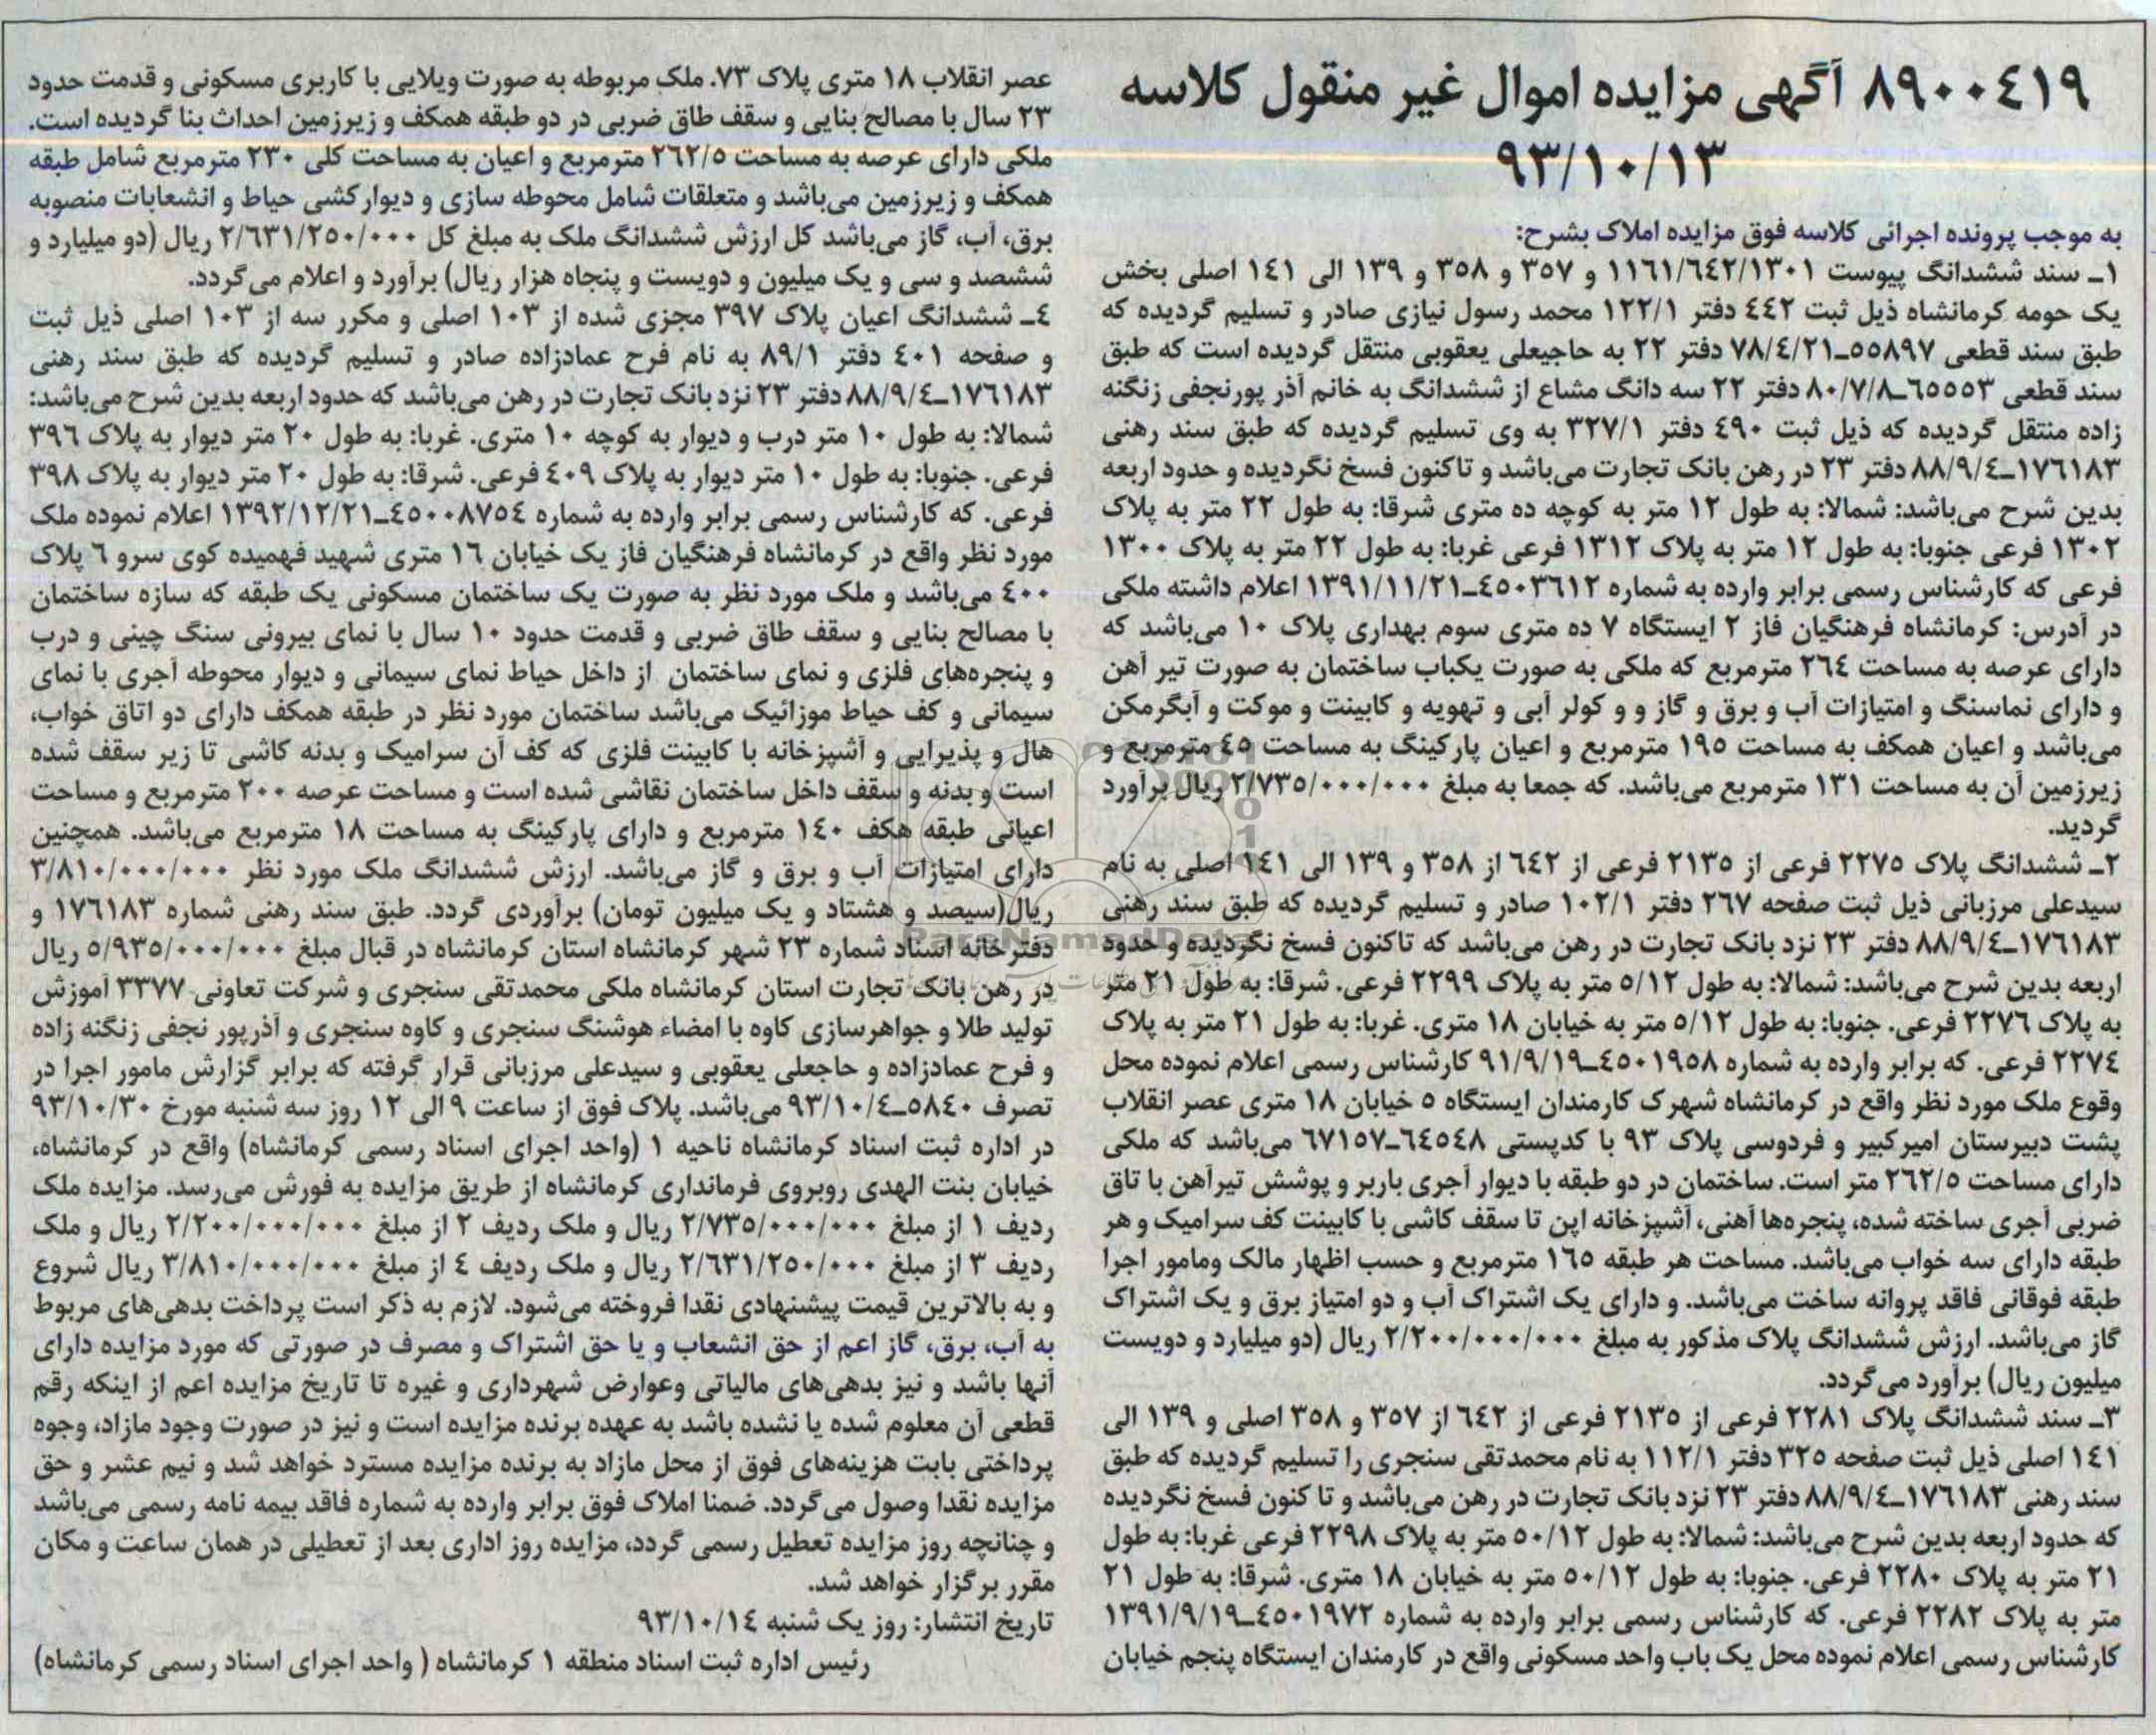 ۸۹۰۰٤۱۹ آگهی مزایده اموال غیر منقول کلاسه
۹۳/۱۰/۱۳
به موجب پرونده اجرائی کلاسه فوق مزایده املاک بشرح:
۱ـ سند ششدانگ پیوست ۱۱٦۱/٦٤۲/۱۳۰۱ و ۳۵۷ و ۳۵۸ و ۱۳۹ الی ۱٤۱ اصلی بخش
یک حومه کرمانشاه ذیل ثبت ٤٤۲ دفتر ۱۲۲/۱ محمد رسول نیازی صادر و تسلیم گردیده که
طبق سند قطعی ۵۵۸۹۷ـ۷۸/٤/۲۱ دفتر ۲۲ به حاجیعلی یعقوبی منتقل گردیده است که طبق
سند قطعی ٦۵۵۵۳ـ۸۰/۷/۸ دفتر ۲۲ سه دانگ مشاع از ششدانگ به خانم آذر پورنجفی زنگنه
زاده منتقل گردیده که ذیل ثبت ٤۹۰ دفتر ۳۲۷/۱ به وی تسلیم گردیده که طبق سند رهنی
۱۷٦۱۸۳ـ۸۸/۹/٤ دفتر ۲۳ در رهن بانک تجارت می‌باشد و تاکنون فسخ نگردیده و حدود اربعه
بدین شرح می‌باشد: شمالا: به طول ۱۲ متر به کوچه ده متری شرقا: به طول ۲۲ متر به پلاک
۱۳۰۲ فرعی جنوبا: به طول ۱۲ متر به پلاک ۱۳۱۲ فرعی غربا: به طول ۲۲ متر به پلاک ۱۳۰۰
فرعی که کارشناس رسمی برابر وارده به شماره ٤۵۰۳٦۱۲ـ۱۳۹۱/۱۱/۲۱ اعلام داشته ملکی
در آدرس: کرمانشاه فرهنگیان فاز ۲ ایستگاه ۷ ده متری سوم بهداری پلاک ۱۰ می‌باشد که
دارای عرصه به مساحت ۲٦٤ مترمربع که ملکی به صورت یکباب ساختمان به صورت تیر آهن
و دارای نماسنگ و امتیازات آب و برق و گاز و و کولر آبی و تهویه و کابینت و موکت و آبگرمکن
می‌باشد و اعیان همکف به مساحت ۱۹۵ مترمربع و اعیان پارکینگ به مساحت ٤۵ مترمربع و
زیرزمین آن به مساحت ۱۳۱ مترمربع می‌باشد. که جمعا به مبلغ ۲/۷۳۵/۰۰۰/۰۰۰ ریال برآورد
گردید.
۲ـ ششدانگ پلاک ۲۲۷۵ فرعی از ۲۱۳۵ فرعی از ٦٤۲ از ۳۵۸ و ۱۳۹ الی ۱٤۱ اصلی به نام
سیدعلی مرزبانی ذیل ثبت صفحه ۲٦۷ دفتر ۱۰۲/۱ صادر و تسلیم گردیده که طبق سند رهنی
۱۷٦۱۸۳ـ۸۸/۹/٤ دفتر ۲۳ نزد بانک تجارت در رهن می‌باشد که تاکنون فسخ نگردیده و حدود
اربعه بدین شرح می‌باشد: شمالا: به طول ۵/۱۲ متر به پلاک ۲۲۹۹ فرعی. شرقا: به طول ۲۱ متر
به پلاک ۲۲۷٦ فرعی. جنوبا: به طول ۵/۱۲ متر به خیابان ۱۸ متری. غربا: به طول ۲۱ متر به پلاک
۲۲۷٤ فرعی. که برابر وارده به شماره ٤۵۰۱۹۵۸ـ۹۱/۹/۱۹ کارشناس رسمی اعلام نموده محل
وقوع ملک مورد نظر واقع در کرمانشاه شهرک کارمندان ایستگاه ۵ خیابان ۱۸ متری عصر انقلاب
پشت دبیرستان امیرکبیر و فردوسی پلاک ۹۳ با کدپستی ٦٤۵٤۸ـ٦۷۱۵۷ می‌باشد که ملکی
دارای مساحت ۲٦۲/۵ متر است. ساختمان در دو طبقه با دیوار آجری باربر و پوشش تیرآهن با تاق
ضربی آجری ساخته شده، پنجره‌ها آهنی، آشپزخانه اپن تا سقف کاشی با کابینت کف سرامیک و هر
طبقه دارای سه خواب می‌باشد. مساحت هر طبقه ۱٦۵ مترمربع و حسب اظهار مالک ومامور اجرا
طبقه فوقانی فاقد پروانه ساخت می‌باشد. و دارای یک اشتراک آب و دو امتیاز برق و یک اشتراک
گاز می‌باشد. ارزش ششدانگ پلاک مذکور به مبلغ ۲/۲۰۰/۰۰۰/۰۰۰ ریال (دو میلیارد و دویست
میلیون ریال) برآورد می‌گردد.
۳ـ سند ششدانگ پلاک ۲۲۸۱ فرعی از ۲۱۳۵ فرعی از ٦٤۲ از ۳۵۷ و ۳۵۸ اصلی و ۱۳۹ الی
۱٤۱ اصلی ذیل ثبت صفحه ۳۲۵ دفتر ۱۱۲/۱ به نام محمدتقی سنجری را تسلیم گردیده که طبق
سند رهنی ۱۷٦۱۸۳ـ۸۸/۹/٤ دفتر ۲۳ نزد بانک تجارت در رهن می‌باشد و تا کنون فسخ نگردیده
که حدود اربعه بدین شرح می‌باشد: شمالا: به طول ۵۰/۱۲ متر به پلاک ۲۲۹۸ فرعی غربا: به طول
۲۱ متر به پلاک ۲۲۸۰ فرعی. جنوبا: به طول ۵۰/۱۲ متر به خیابان ۱۸ متری. شرقا: به طول ۲۱
متر به پلاک ۲۲۸۲ فرعی. که کارشناس رسمی برابر وارده به شماره ٤۵۰۱۹۷۲ـ۱۳۹۱/۹/۱۹
کارشناس رسمی اعلام نموده محل یک باب واحد مسکونی واقع در کارمندان ایستگاه پنجم خیابان
عصر انقلاب ۱۸ متری پلاک ۷۳. ملک مربوطه به صورت ویلایی با کاربری مسکونی و قدمت حدود
۲۳ سال با مصالح بنایی و سقف طاق ضربی در دو طبقه همکف و زیرزمین احداث بنا گردیده است.
ملکی دارای عرصه به مساحت ۲٦۲/۵ مترمربع و اعیان به مساحت کلی ۲۳۰ مترمربع شامل طبقه
همکف و زیرزمین می‌باشد و متعلقات شامل محوطه سازی و دیوارکشی حیاط و انشعابات منصوبه
برق، آب، گاز می‌باشد کل ارزش ششدانگ ملک به مبلغ کل ۲/٦۳۱/۲۵۰/۰۰۰ ریال (دو میلیارد و
ششصد و سی و یک میلیون و دویست و پنجاه هزار ریال) برآورد و اعلام می‌گردد.
٤ـ ششدانگ اعیان پلاک ۳۹۷ مجزی شده از ۱۰۳ اصلی و مکرر سه از ۱۰۳ اصلی ذیل ثبت
و صفحه ٤۰۱ دفتر ۸۹/۱ به نام فرح عمادزاده صادر و تسلیم گردیده که طبق سند رهنی
۱۷٦۱۸۳ـ۸۸/۹/٤ دفتر ۲۳ نزد بانک تجارت در رهن می‌باشد که حدود اربعه بدین شرح می‌باشد:
شمالا: به طول ۱۰ متر درب و دیوار به کوچه ۱۰ متری. غربا: به طول ۲۰ متر دیوار به پلاک ۳۹٦
فرعی. جنوبا: به طول ۱۰ متر دیوار به پلاک ٤۰۹ فرعی. شرقا: به طول ۲۰ متر دیوار به پلاک ۳۹۸
فرعی. که کارشناس رسمی برابر وارده به شماره ٤۵۰۰۸۷۵٤ـ۱۳۹۲/۱۲/۲۱ اعلام نموده ملک
مورد نظر واقع در کرمانشاه فرهنگیان فاز یک خیابان ۱٦ متری شهید فهمیده کوی سرو ٦ پلاک
٤۰۰ می‌باشد و ملک مورد نظر به صورت یک ساختمان مسکونی یک طبقه که سازه ساختمان
با مصالح بنایی و سقف طاق ضربی و قدمت حدود ۱۰ سال با نمای بیرونی سنگ چینی و درب
و پنجره‌های فلزی و نمای ساختمان از داخل حیاط نمای سیمانی و دیوار محوطه آجری با نمای
سیمانی و کف حیاط موزائیک می‌باشد ساختمان مورد نظر در طبقه همکف دارای دو اتاق خواب،
هال و پذیرایی و آشپزخانه با کابینت فلزی که کف آن سرامیک و بدنه کاشی تا زیر سقف شده
است و بدنه و سقف داخل ساختمان نقاشی شده است و مساحت عرصه ۲۰۰ مترمربع و مساحت
اعیانی طبقه هکف ۱٤۰ مترمربع و دارای پارکینگ به مساحت ۱۸ مترمربع می‌باشد. همچنین
دارای امتیازات آب و برق و گاز می‌باشد. ارزش ششدانگ ملک مورد نظر ۳/۸۱۰/۰۰۰/۰۰۰
ریال(سیصد و هشتاد و یک میلیون تومان) برآوردی گردد. طبق سند رهنی شماره ۱۷٦۱۸۳ و
دفترخانه اسناد شماره ۲۳ شهر کرمانشاه استان کرمانشاه در قبال مبلغ ۵/۹۳۵/۰۰۰/۰۰۰ ریال
در رهن بانک تجارت استان کرمانشاه ملکی محمدتقی سنجری و شرکت تعاونی ۳۳۷۷ آموزش
تولید طلا و جواهرسازی کاوه با امضاء هوشنگ سنجری و کاوه سنجری و آذرپور نجفی زنگنه زاده
و فرح عمادزاده و حاجعلی یعقوبی و سیدعلی مرزبانی قرار گرفته که برابر گزارش مامور اجرا در
تصرف ۵۸٤۰ـ۹۳/۱۰/٤ می‌باشد. پلاک فوق از ساعت ۹ الی ۱۲ روز سه شنبه مورخ ۹۳/۱۰/۳۰
در اداره ثبت اسناد کرمانشاه ناحیه ۱ (واحد اجرای اسناد رسمی کرمانشاه) واقع در کرمانشاه،
خیابان بنت الهدی روبروی فرمانداری کرمانشاه از طریق مزایده به فورش می‌رسد. مزایده ملک
ردیف ۱ از مبلغ ۲/۷۳۵/۰۰۰/۰۰۰ ریال و ملک ردیف ۲ از مبلغ ۲/۲۰۰/۰۰۰/۰۰۰ ریال و ملک
ردیف ۳ از مبلغ ۲/٦۳۱/۲۵۰/۰۰۰ ریال و ملک ردیف ٤ از مبلغ ۳/۸۱۰/۰۰۰/۰۰۰ ریال شروع
و به بالاترین قیمت پیشنهادی نقدا فروخته می‌شود. لازم به ذکر است پرداخت بدهی‌های مربوط
به آب، برق، گاز اعم از حق انشعاب و یا حق اشتراک و مصرف در صورتی که مورد مزایده دارای
آنها باشد و نیز بدهی‌های مالیاتی وعوارض شهرداری و غیره تا تاریخ مزایده اعم از اینکه رقم
قطعی آن معلوم شده یا نشده باشد به عهده برنده مزایده است و نیز در صورت وجود مازاد، وجوه
پرداختی بابت هزینه‌های فوق از محل مازاد به برنده مزایده مسترد خواهد شد و نیم عشر و حق
مزایده نقدا وصول می‌گردد. ضمنا املاک فوق برابر وارده به شماره فاقد بیمه نامه رسمی می‌باشد
و چنانچه روز مزایده تعطیل رسمی گردد، مزایده روز اداری بعد از تعطیلی در همان ساعت و مکان
مقرر برگزار خواهد شد.
تاریخ انتشار: روز یک شنبه ۹۳/۱۰/۱٤
رئیس اداره ثبت اسناد منطقه ۱ کرمانشاه ( واحد اجرای اسناد رسمی کرمانشاه)
ParsNamadData